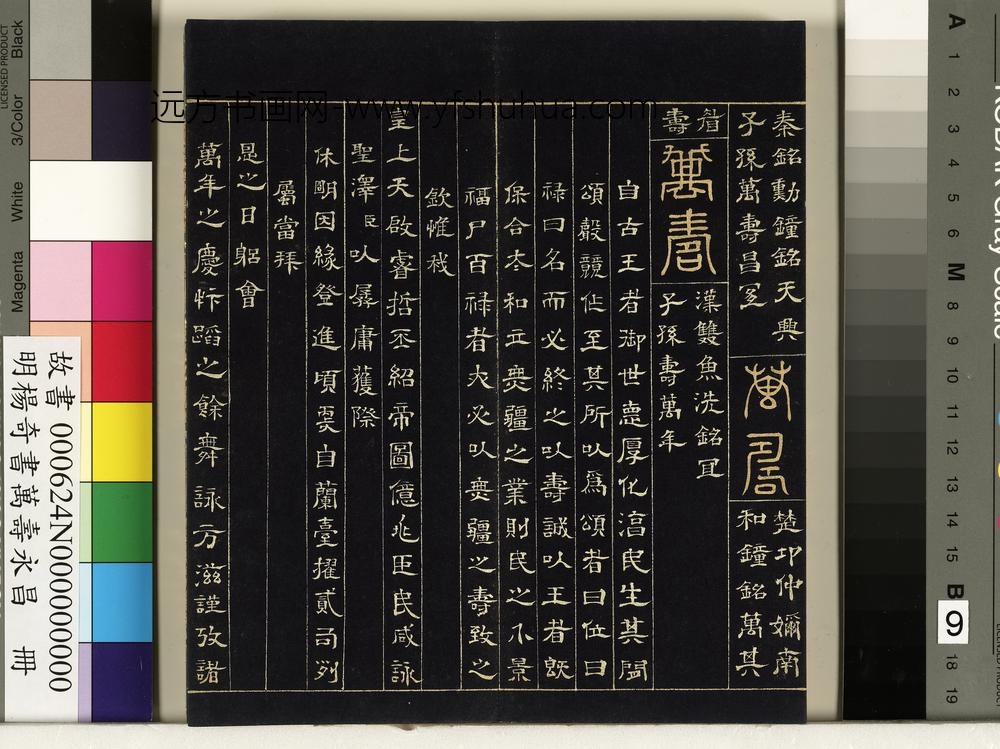 秦銘勳鐘銘天興
子孫萬壽昌
萬年
楚邛仲嬭南
和鐘銘萬其
眉
壽
萬壽
漢雙魚洗銘宜
子孫壽萬年
自古王者御世悳厚化洽民生其閒
頌嗀競作至其所以爲頌者曰位曰
祿曰名而必終之以壽誠以王者旣
保合太和立無疆之業則民之介景
福尸百祿者夫必以無疆之壽致之
欽惟我
皇上天啟睿哲丕紹帝圖億兆臣民咸詠
聖澤臣以孱庸獲際
休明因緣登進頃要自蘭臺擢貳司列
屬當拜
是之日躬會
萬年之慶忭蹈之餘舞詠方滋謹攷諸
远方书画网-www.yfshuhua.com
故書 000624N000000000
明楊奇書萬壽永昌 冊
LICENSED PRODUCT
Black
3/Color
White
Magenta
A 1 2 3 4 5 6 M 8 9 10 11 12 13 14 15 B 18 19
9